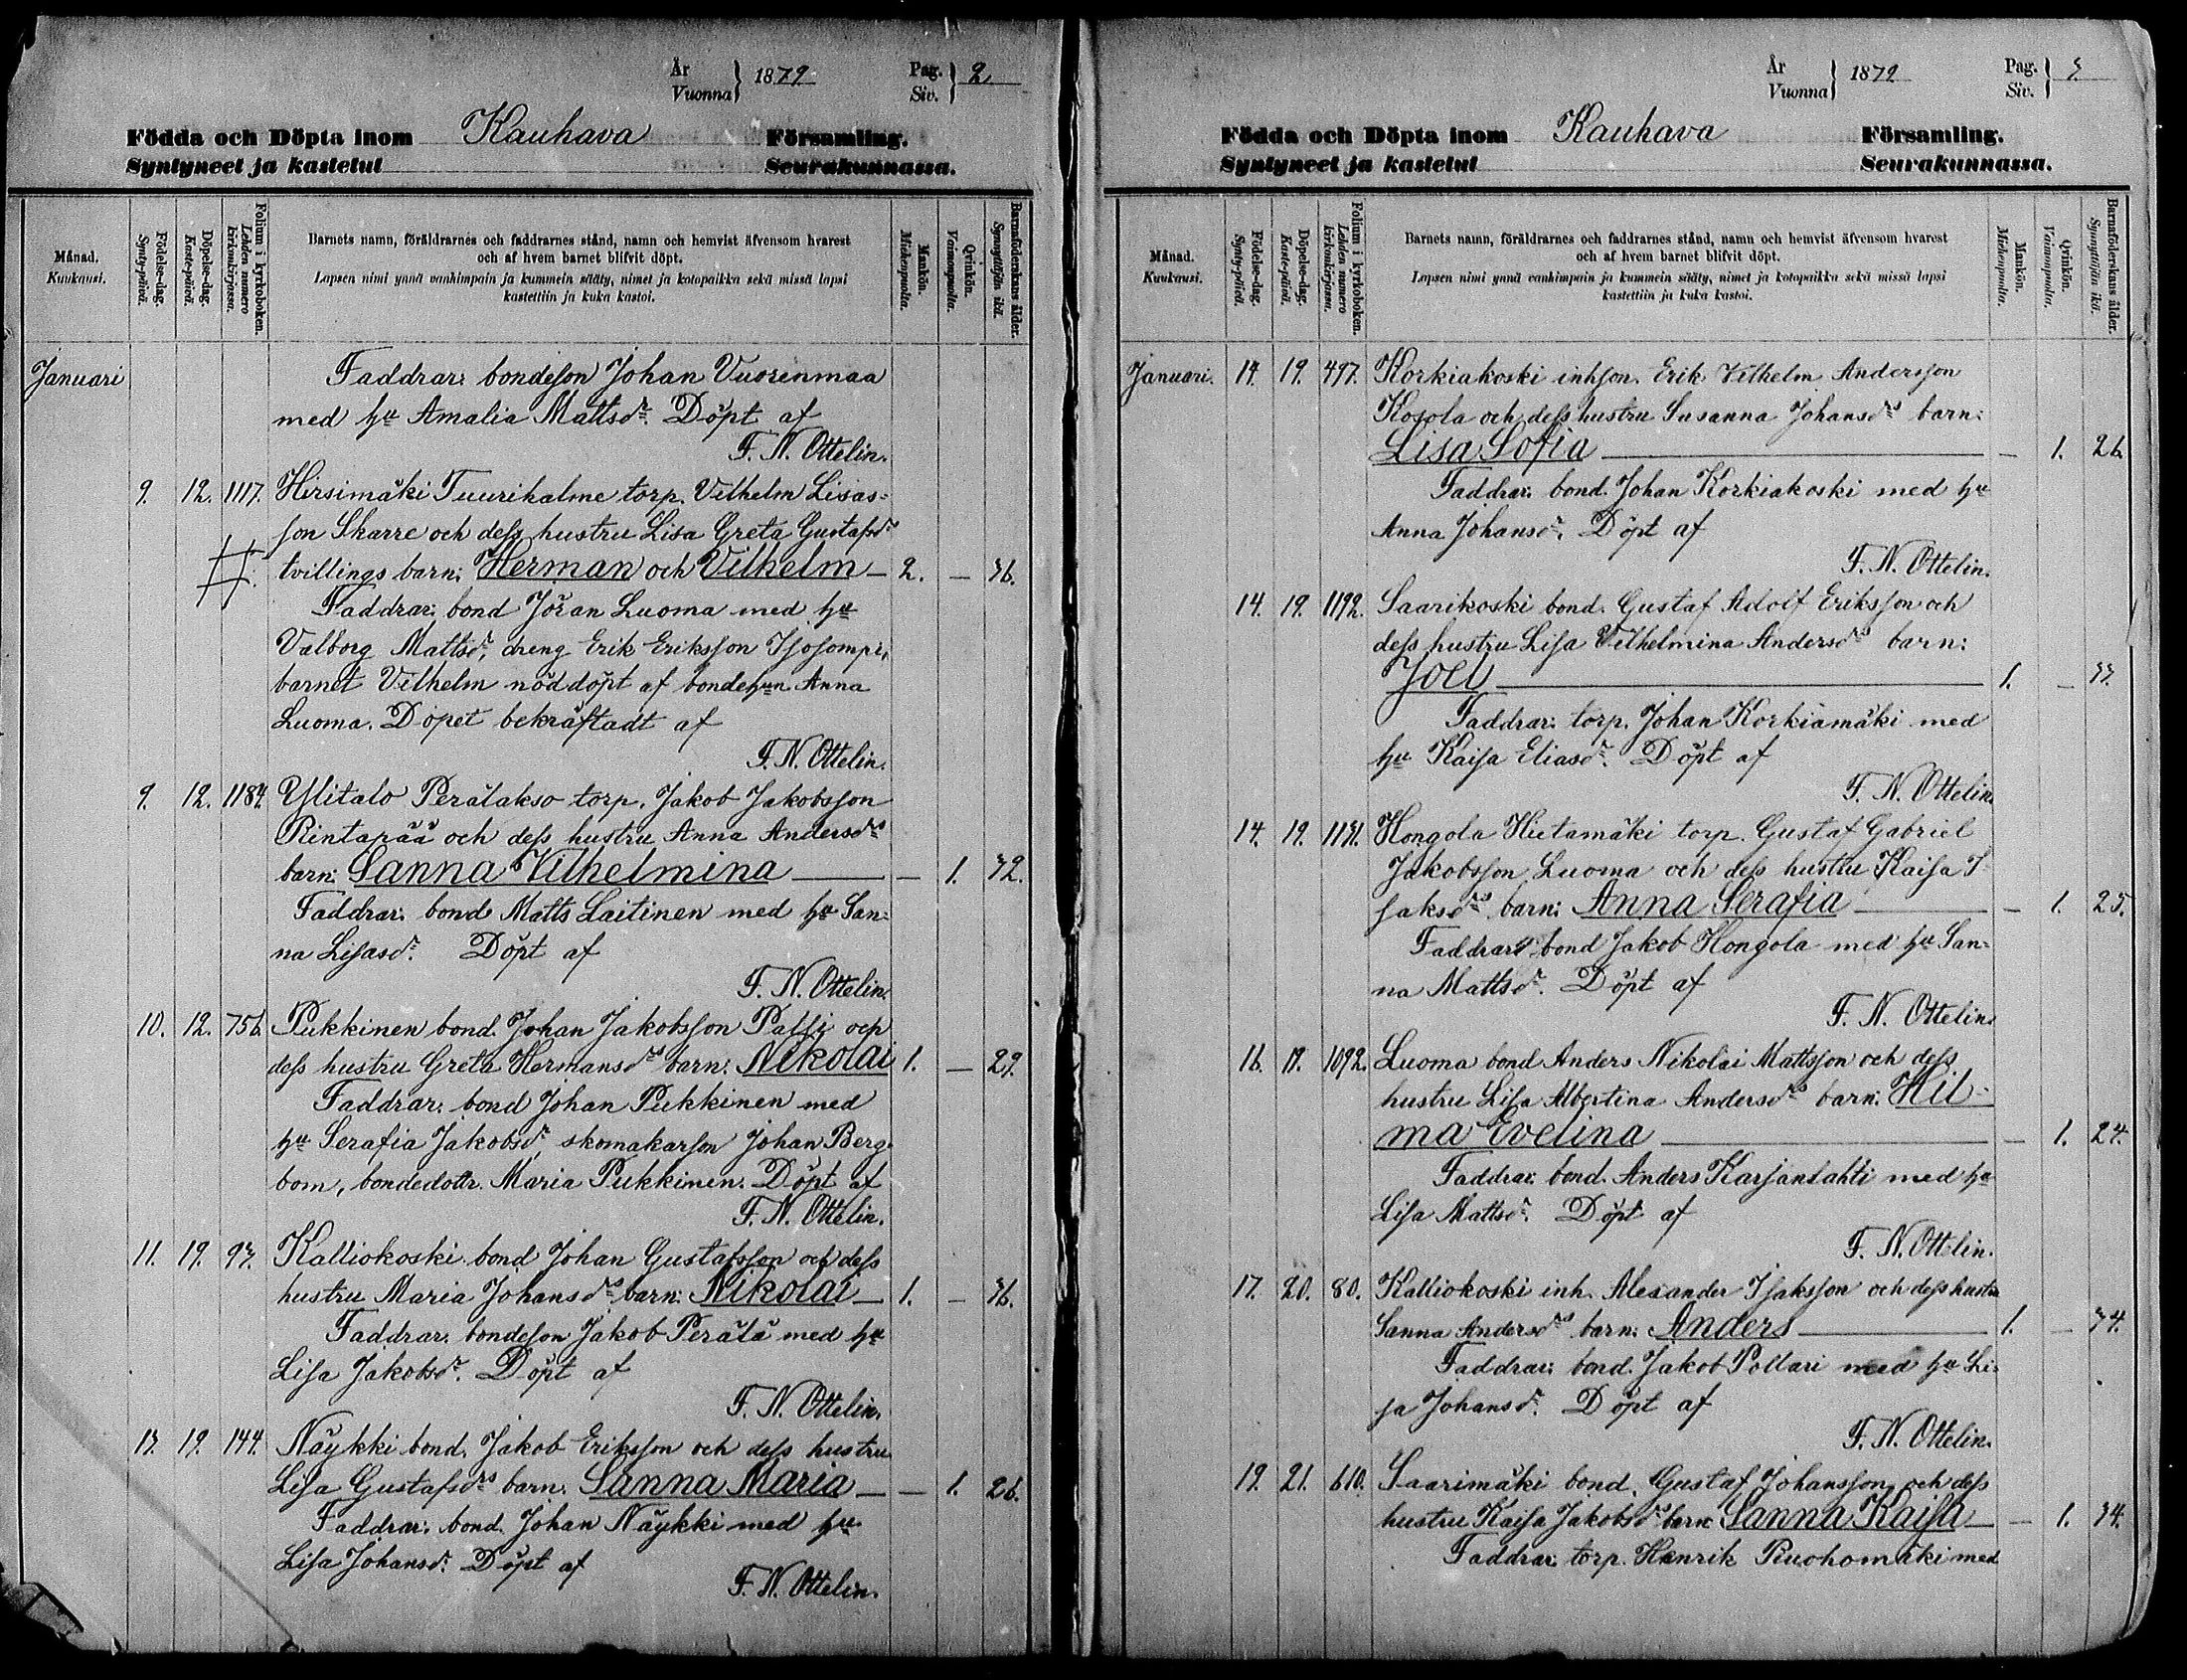 År
Vuonna } 1879
Pag.
Siv. } 2
Födda och Döpta inom Kauhava Församling.
Syntyneet ja kastetut Seurakunnassa.
Månad.
Kuukausi.
Födelse-dag.
Synty-päivä.
Döpelse-dag.
Kaste-päivä.
Folium i kyrkoboken.
Lehden numero
kirkonkirjassa.
Barnets namn, föräldrarnes och faddrarnes stånd, namn och hemvist äfvensom hvarest
och af hvem barnet blifvit döpt.
Lapsen nimi ynnä vanhimpain ja kummein sääty, nimet ja kotopaikka sekä missä lapsi
kastettiin ja kuka kastoi.
Mankön.
Miehenpuolta.
Qvinkön.
Vaimonpuolta.
Barnaföderskans ålder.
Synnyttäjän ikä.
Januari Faddrar: bondeson Johan Vuorenmaa
med hu Amalia Mattsdr. Döpt af
F. N. Ottelin.
9. 12. 1117. Hirsimäki Tuurihalme torp. Vilhelm Lisas=
son Skarre och dess hustru Lisa Greta Gustafsdr
tvillings barn: Herman och Vilhelm – 2. – 36.
Faddrar: bond Jöran Luoma med hu
Valborg Mattsdr, dreng Erik Eriksson Isosompi,
barnet Vilhelm nöddöpt af bondehun Anna
Luoma. Döpet bekräftadt af
F. N. Ottelin.
9. 12. 1184. Ylitalo Perälakso torp. Jakob Jakobsson
Rintapää och dess hustru Anna Andersdrs
barn: Sanna Vilhelmina – – 1. 32.
Faddrar: bond Matts Laitinen med hu San=
na Lisasdr. Döpt af
F. N. Ottelin.
10. 12. 756. Pukkinen bond. Johan Jakobsson Passi och
dess hustru Greta Hermansdrs barn: Nikolai 1. – 29.
Faddrar: bond Johan Pukkinen med
hu Serafia Jakobsdr, skomakarson Johan Berg=
bom, bondedottr. Maria Pukkinen. Döpt af
F. N. Ottelin.
11. 19. 93. Kalliokoski bond Johan Gustafsson och dess
hustru Maria Johansdrs barn: Nikolai – 1. – 36.
Faddrar: bondeson Jakob Perälä med hu
Lisa Jakobsdr. Döpt af
F. N. Ottelin.
13. 19. 144. Näykki bond. Jakob Eriksson och dess hustru
Lisa Gustafsdrs barn: Sanna Maria – – 1. 26.
Faddrar: bond. Johan Näykki med hu
Lisa Johansdr. Döpt af
F. N. Ottelin.
År
Vuonna } 1879
Pag.
Siv. } 3.
Födda och Döpta inom Kauhava Församling.
Syntyneet ja kastetut Seurakunnassa.
Månad.
Kuukausi.
Födelse-dag.
Synty-päivä.
Döpelse-dag.
Kaste-päivä.
Folium i kyrkoboken.
Lehden numero
kirkonkirjassa.
Barnets namn, föräldrarnes och faddrarnes stånd, namn och hemvist äfvensom hvarest
och af hvem barnet blifvit döpt.
Lapsen nimi ynnä vanhimpain ja kummein sääty, nimet ja kotopaikka sekä missä lapsi
kastettiin ja kuka kastoi.
Mankön.
Miehenpuolta.
Qvinkön.
Vaimonpuolta.
Barnaföderskans ålder.
Synnyttäjän ikä.
Januari. 14. 19. 497. Korkiakoski inhson. Erik Vilhelm Andersson
Kosola och dess hustru Susanna Johansdrs barn:
Lisa Sofia – – 1. 26.
Faddrar: bond. Johan Korkiakoski med hu
Anna Johansdr. Döpt af
F. N. Ottelin.
14. 19. 1192. Saarikoski bond. Gustaf Adolf Eriksson och
dess hustru Lisa Vilhelmina Andersdrs barn:
Joel – 1. – 33.
Faddrar: torp. Johan Korkiamäki med
hu Kaisa Eliasdr. Döpt af
F. N. Ottelin.
14. 19. 1131. Hongola Hietamäki torp. Gustaf Gabriel
Jakobsson Luoma och dess hustru Kaisa I=
saksdrs barn: Anna Serafia – – 1. 25.
Faddrar: bond Jakob Hongola med hu San=
na Mattsdr. Döpt af
F. N. Ottelin.
16. 19. 1092. Luoma bond Anders Nikolai Mattsson och dess
hustru Lisa Albertina Andersdrs barn: Hil=
ma Evelina – – 1. 24.
Faddrar: bond. Anders Karjanlahti med hu
Lisa Mattsdr. Döpt af
F. N. Ottelin.
17. 20. 80. Kalliokoski inh. Alexander Isaksson och dess hustru
Sanna Andersdrs barn: Anders – 1. – 34.
Faddrar: bond. Jakob Pollari med hu Li=
sa Johansdr. Döpt af
F. N. Ottelin.
19. 21. 610. Saarimäki bond. Gustaf Johansson och dess
hustru Kaisa Jakobsdrs barn: Sanna Kaisa – – 1. 34.
Faddrar: torp. Henrik Ruohomäki med